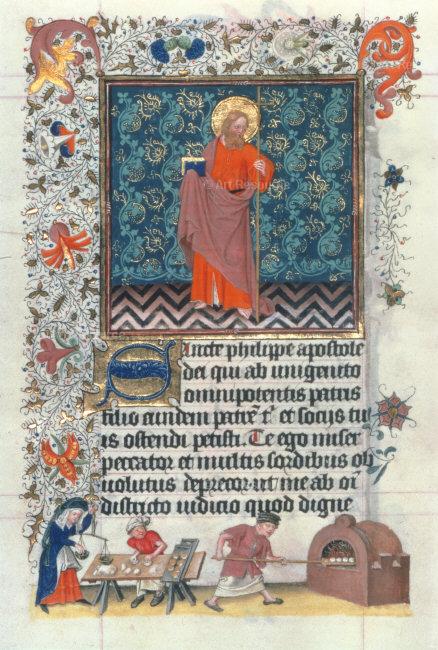 © Art Resource
Sancte philippe apostole
dei qui ab unigenito
omnipotentis patris
filio eundem patrē t' et sociis tu
is ostendi petisti. Te ego miser
peccator et multis sordibus ob
uolutus deprecor ut me ab oī
districto iudicio quod digne